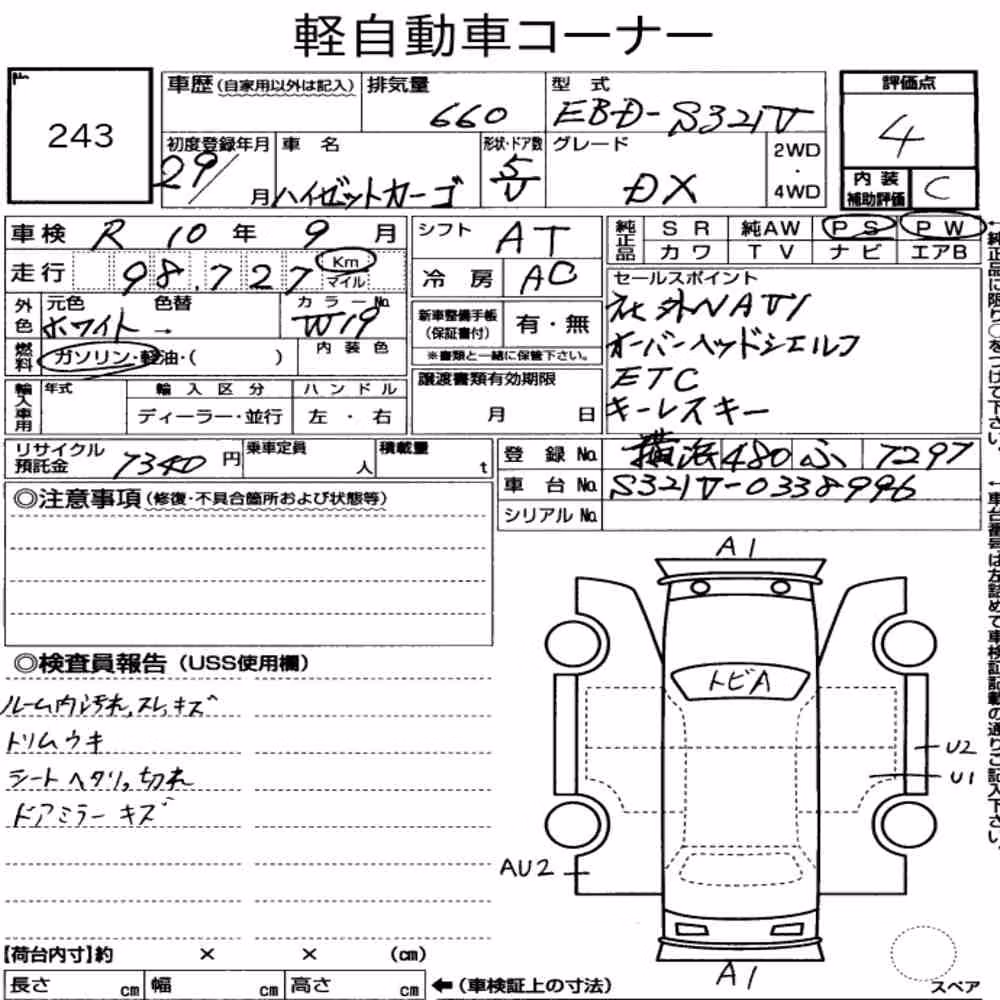 軽自動車コーナー
243
車歴(自家用以外は記入) 排気量 660 型式 EBD-S321V 評価点 4
初度登録年月 29/ 月 車名 ハイゼットカーゴ 形状・ドア数 5/V グレード DX 2WD・4WD 内装補助評価 C
車検 R 10 年 9 月 シフト AT 純正品 SR 純AW PS PW
カワ TV ナビ エアB
走行 98,727 Km マイル 冷房 AC
セールスポイント
社外NAVI
オーバーヘッドシェルフ
ETC
キーレスキー
外色 元色 ホワイト → 色替 カラーNo. W19
新車整備手帳(保証書付) 有・無
※書類と一緒に保管下さい。
燃料 ガソリン・軽油・( ) 内装色
譲渡書類有効期限 月 日
輸入車用 年式 輸入区分 ディーラー・並行 ハンドル 左・右
リサイクル預託金 7340 円 乗車定員 人 積載量 t
登録No. 横浜 480 ふ 7297
車台No. S321V-0338996
シリアルNo.
◎注意事項(修復・不具合箇所および状態等)
◎検査員報告(USS使用欄)
ルーム内汚れ,スレ,キズ
トリムウキ
シートヘタリ,切れ
ドアミラーキズ
A1
トビA
U2
U1
AU2
A1
スペア
【荷台内寸】約 × × (cm)
長さ cm 幅 cm 高さ cm ←(車検証上の寸法)
←純正品に限り○をつけて下さい。
←車台番号は左詰めで車検証記載の通りご記入下さい。